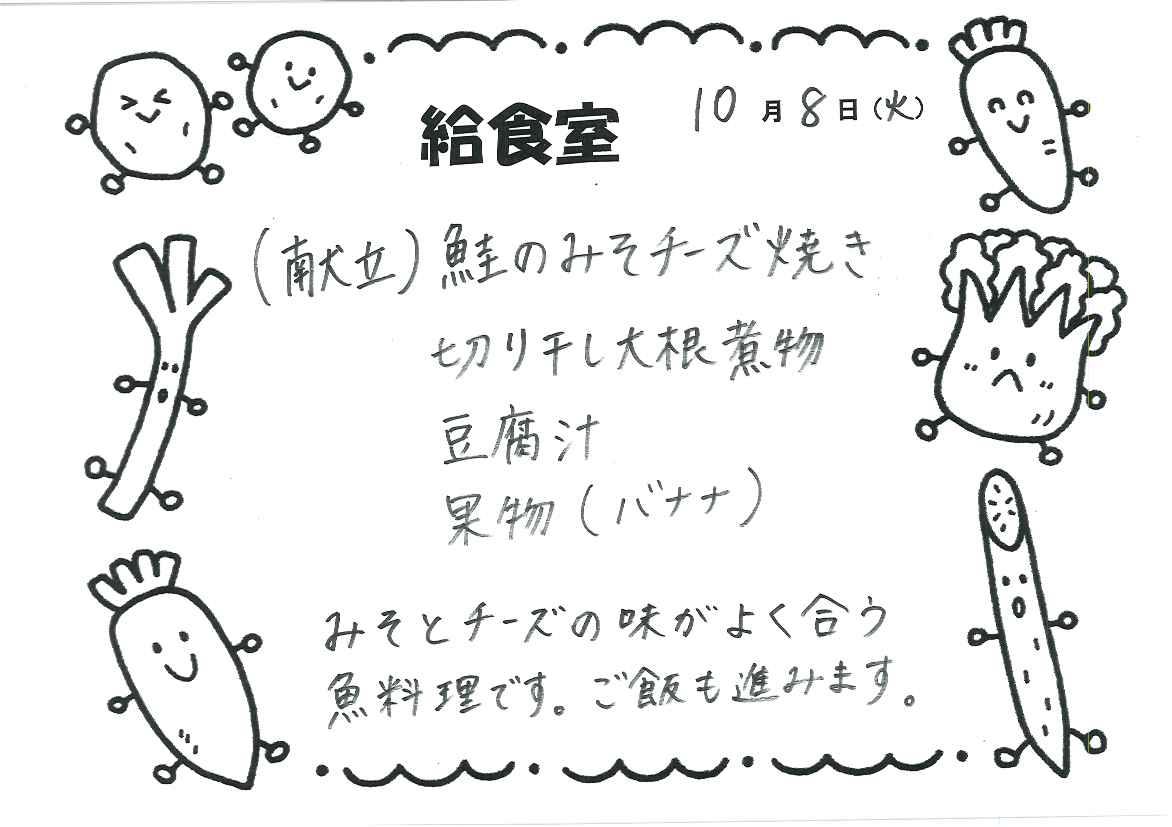 給食室 10月8日(火)
(献立)鮭のみそチーズ焼き
切り干し大根煮物
豆腐汁
果物(バナナ)
みそとチーズの味がよく合う
魚料理です。ご飯も進みます。